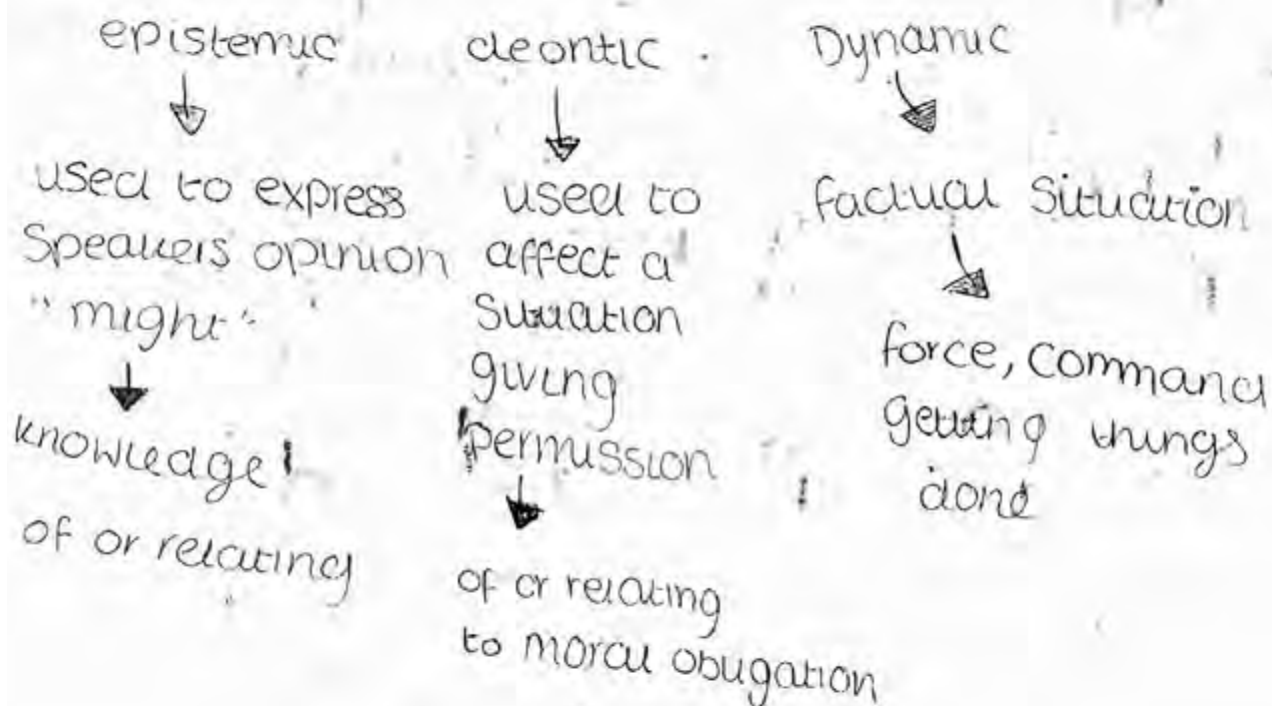 epistemic
used to express
Speakers opinion
"might"
knowledge
of or relating
deontic
used to
affect a
Situation
giving
permission
of or relating
to moral obligation
Dynamic
factual situation
force, command
getting things
done